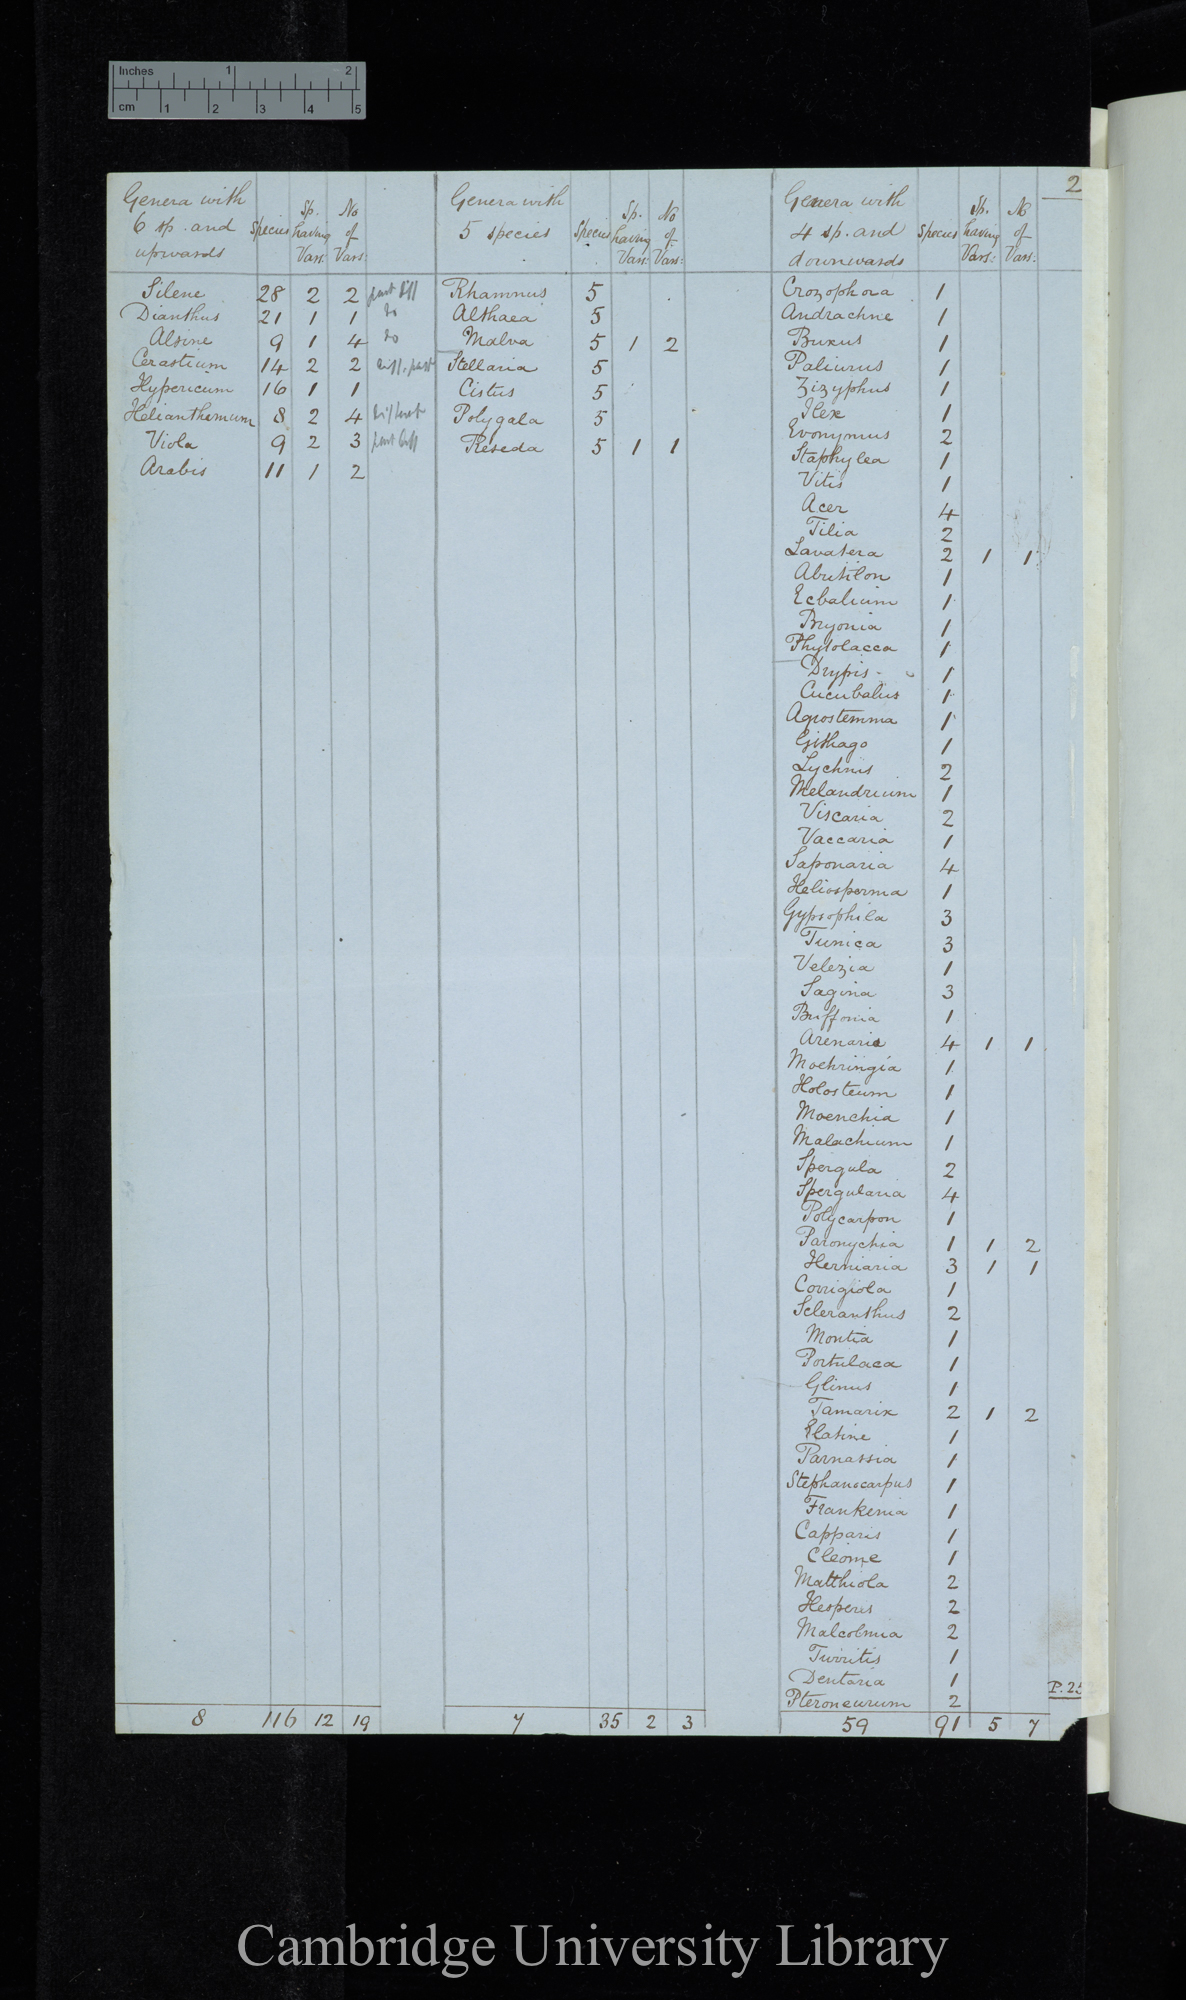 Inches 1 2
cm 1 2 3 4 5
2
Genera with 6 sp. and upwards Species Sp. having Vars: No of Vars:
Silene 28 2 2 part diff
Dianthus 21 1 1 do
Alsine 9 1 4 do
Cerastium 14 2 2 diff. part
Hypericum 16 1 1
Helianthemum 8 2 4 different
Viola 9 2 3 part diff
Arabis 11 1 2
8 116 12 19
Genera with 5 species Species Sp. having Vars: No of Vars:
Rhamnus 5
Althaea 5
Malva 5 1 2
Stellaria 5
Cistus 5
Polygala 5
Reseda 5 1 1
7 35 2 3
Genera with 4 sp. and downwards Species Sp. having Vars: No of Vars:
Crozophora 1
Andrachne 1
Buxus 1
Paliurus 1
Zizyphus 1
Ilex 1
Evonymus 2
Staphylea 1
Vitis 1
Acer 4
Tilia 2
Lavatera 2 1 1
Abutilon 1
Ecbalium 1
Bryonia 1
Phytolacca 1
Drypis 1
Cucubalus 1
Agrostemma 1
Githago 1
Lychnis 2
Melandrium 1
Viscaria 2
Vaccaria 1
Saponaria 4
Heliosperma 1
Gypsophila 3
Tunica 3
Velezia 1
Sagina 3
Buffonia 1
Arenaria 4 1 1
Moehringia 1
Holosteum 1
Moenchia 1
Malachium 1
Spergula 2
Spergularia 4
Polycarpon 1
Paronychia 1 1 2
Herniaria 3 1 1
Corrigiola 1
Scleranthus 2
Montia 1
Portulaca 1
Glinus 1
Tamarix 2 1 2
Elatine 1
Parnassia 1
Stephanocarpus 1
Frankenia 1
Capparis 1
Cleome 1
Matthiola 2
Hesperis 2
Malcolmia 2
Turritis 1
Dentaria 1
Pteroneurum 2
P. 25
59 91 5 7
Cambridge University Library